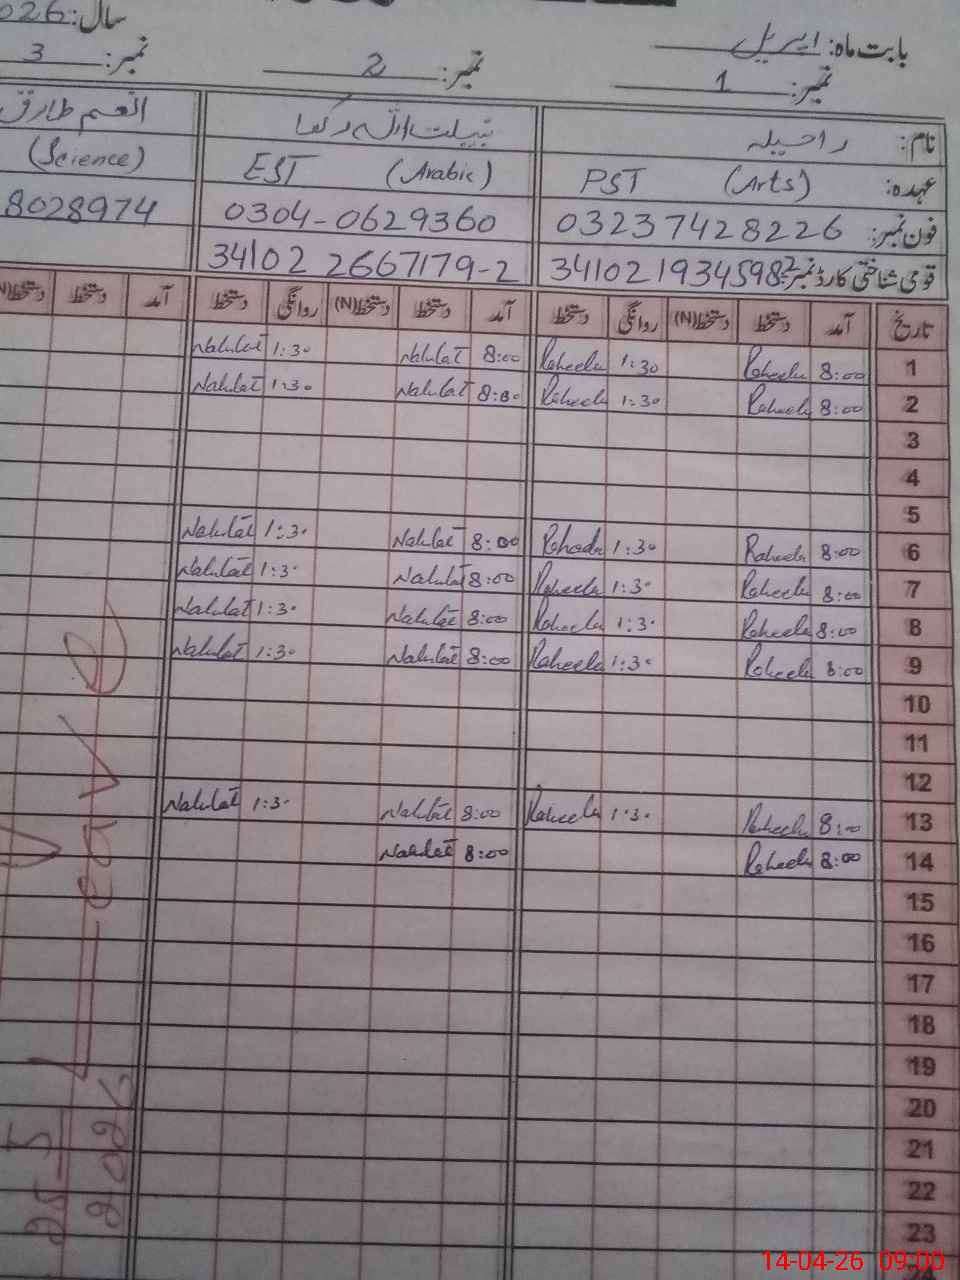 بابت ماہ: اپریل سال: 026
نمبر: 1 نمبر: 2 نمبر: 3
نام: راحیلہ انعم طارق
عہدہ: PST (Arts) EST (Arabic) (Science)
فون نمبر: 03237428226 0304-0629360 8028974
قومی شناختی کارڈ نمبر: 34102 1934598 2 34102 2667179-2
تاریخ آمد دستخط دستخط(N) روانگی دستخط آمد دستخط دستخط(N) روانگی دستخط آمد دستخط دستخط(N)
1 8:00 Raheela 1:30 Raheela 8:00 Nakhlat 1:30 Nakhlat
2 8:00 Raheela 1:30 Raheela 8:00 Nakhlat 1:30 Nakhlat
3
4
5
6 8:00 Raheela 1:30 Raheela 8:00 Nakhlat 1:30 Nakhlat
7 8:00 Raheela 1:30 Raheela 8:00 Nakhlat 1:30 Nakhlat
8 8:00 Raheela 1:30 Raheela 8:00 Nakhlat 1:30 Nakhlat
9 8:00 Raheela 1:30 Raheela 8:00 Nakhlat 1:30 Nakhlat
10
11
12
13 8:00 Raheela 1:30 Raheela 8:00 Nakhlat 1:30 Nakhlat
14 8:00 Raheela 8:00 Nakhlat
15
16
17
18
19
20
21
22
23
14-04-26 09:00